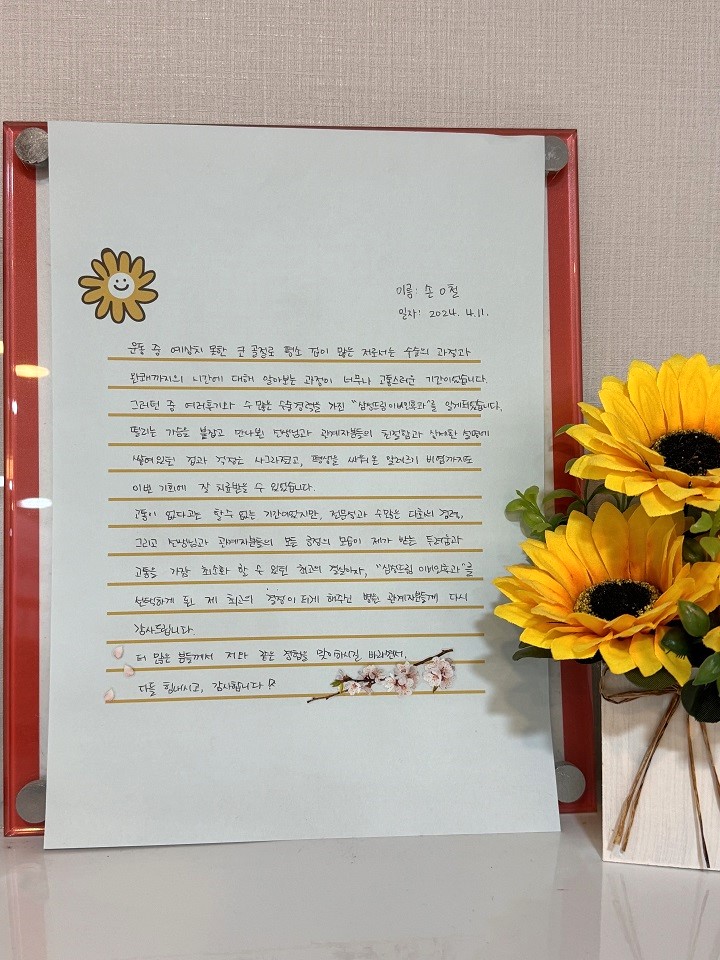 이름: 손 o 철
일자: 2024. 4. 11.
운동 중 예상치 못한 코 골절로 평소 겁이 많은 저로서는 수술의 과정과
완쾌까지의 시간에 대해 알아보는 과정이 너무나 고통스러운 기간이었습니다.
그러던 중 여러후기와 수많은 수술경력을 가진 "삼성드림이비인후과"를 알게되었습니다.
떨리는 가슴을 붙잡고 만나뵌 선생님과 관계자분들의 친절함과 상세한 설명에
쌓여있던 겁과 걱정은 사그라졌고, 평생을 싸워온 알레르기 비염까지도
이번 기회에 잘 치료받을 수 있었습니다.
고통이 없다고는 할수 없는 기간이었지만, 전문성과 수많은 다회의 경력,
그리고 선생님과 관계자분들의 모든 긍정의 모습이 제가 받는 두려움과
고통을 가장 최소화 할 수 있던 최고의 결실이자, "삼성드림 이비인후과"를
선택하게 된 제 최고의 결정이 되게 해주신 병원 관계자분들께 다시
감사드립니다.
더 많은 분들께서 저와 같은 경험을 맞이하시길 바라면서,
다들 힘내시고, 감사합니다